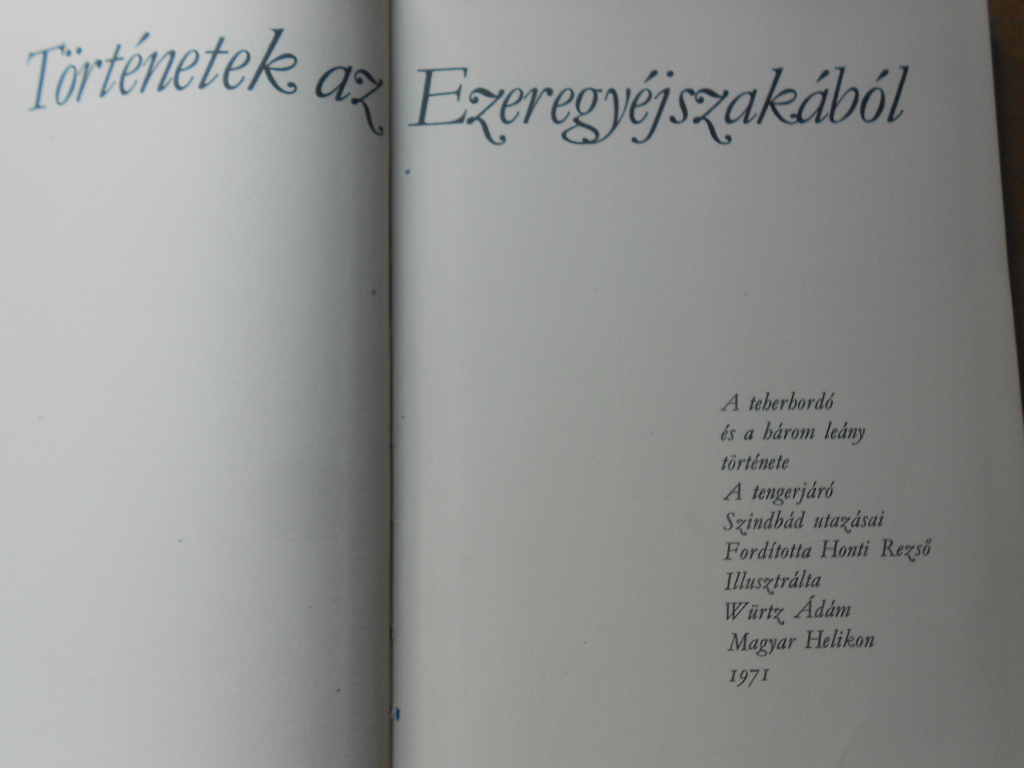 Történetek az Ezeregyéjszakából
A teherhordó
és a három leány
története
A tengerjáró
Szindbád utazásai
Fordította Honti Rezső
Illusztrálta
Würtz Ádám
Magyar Helikon
1971